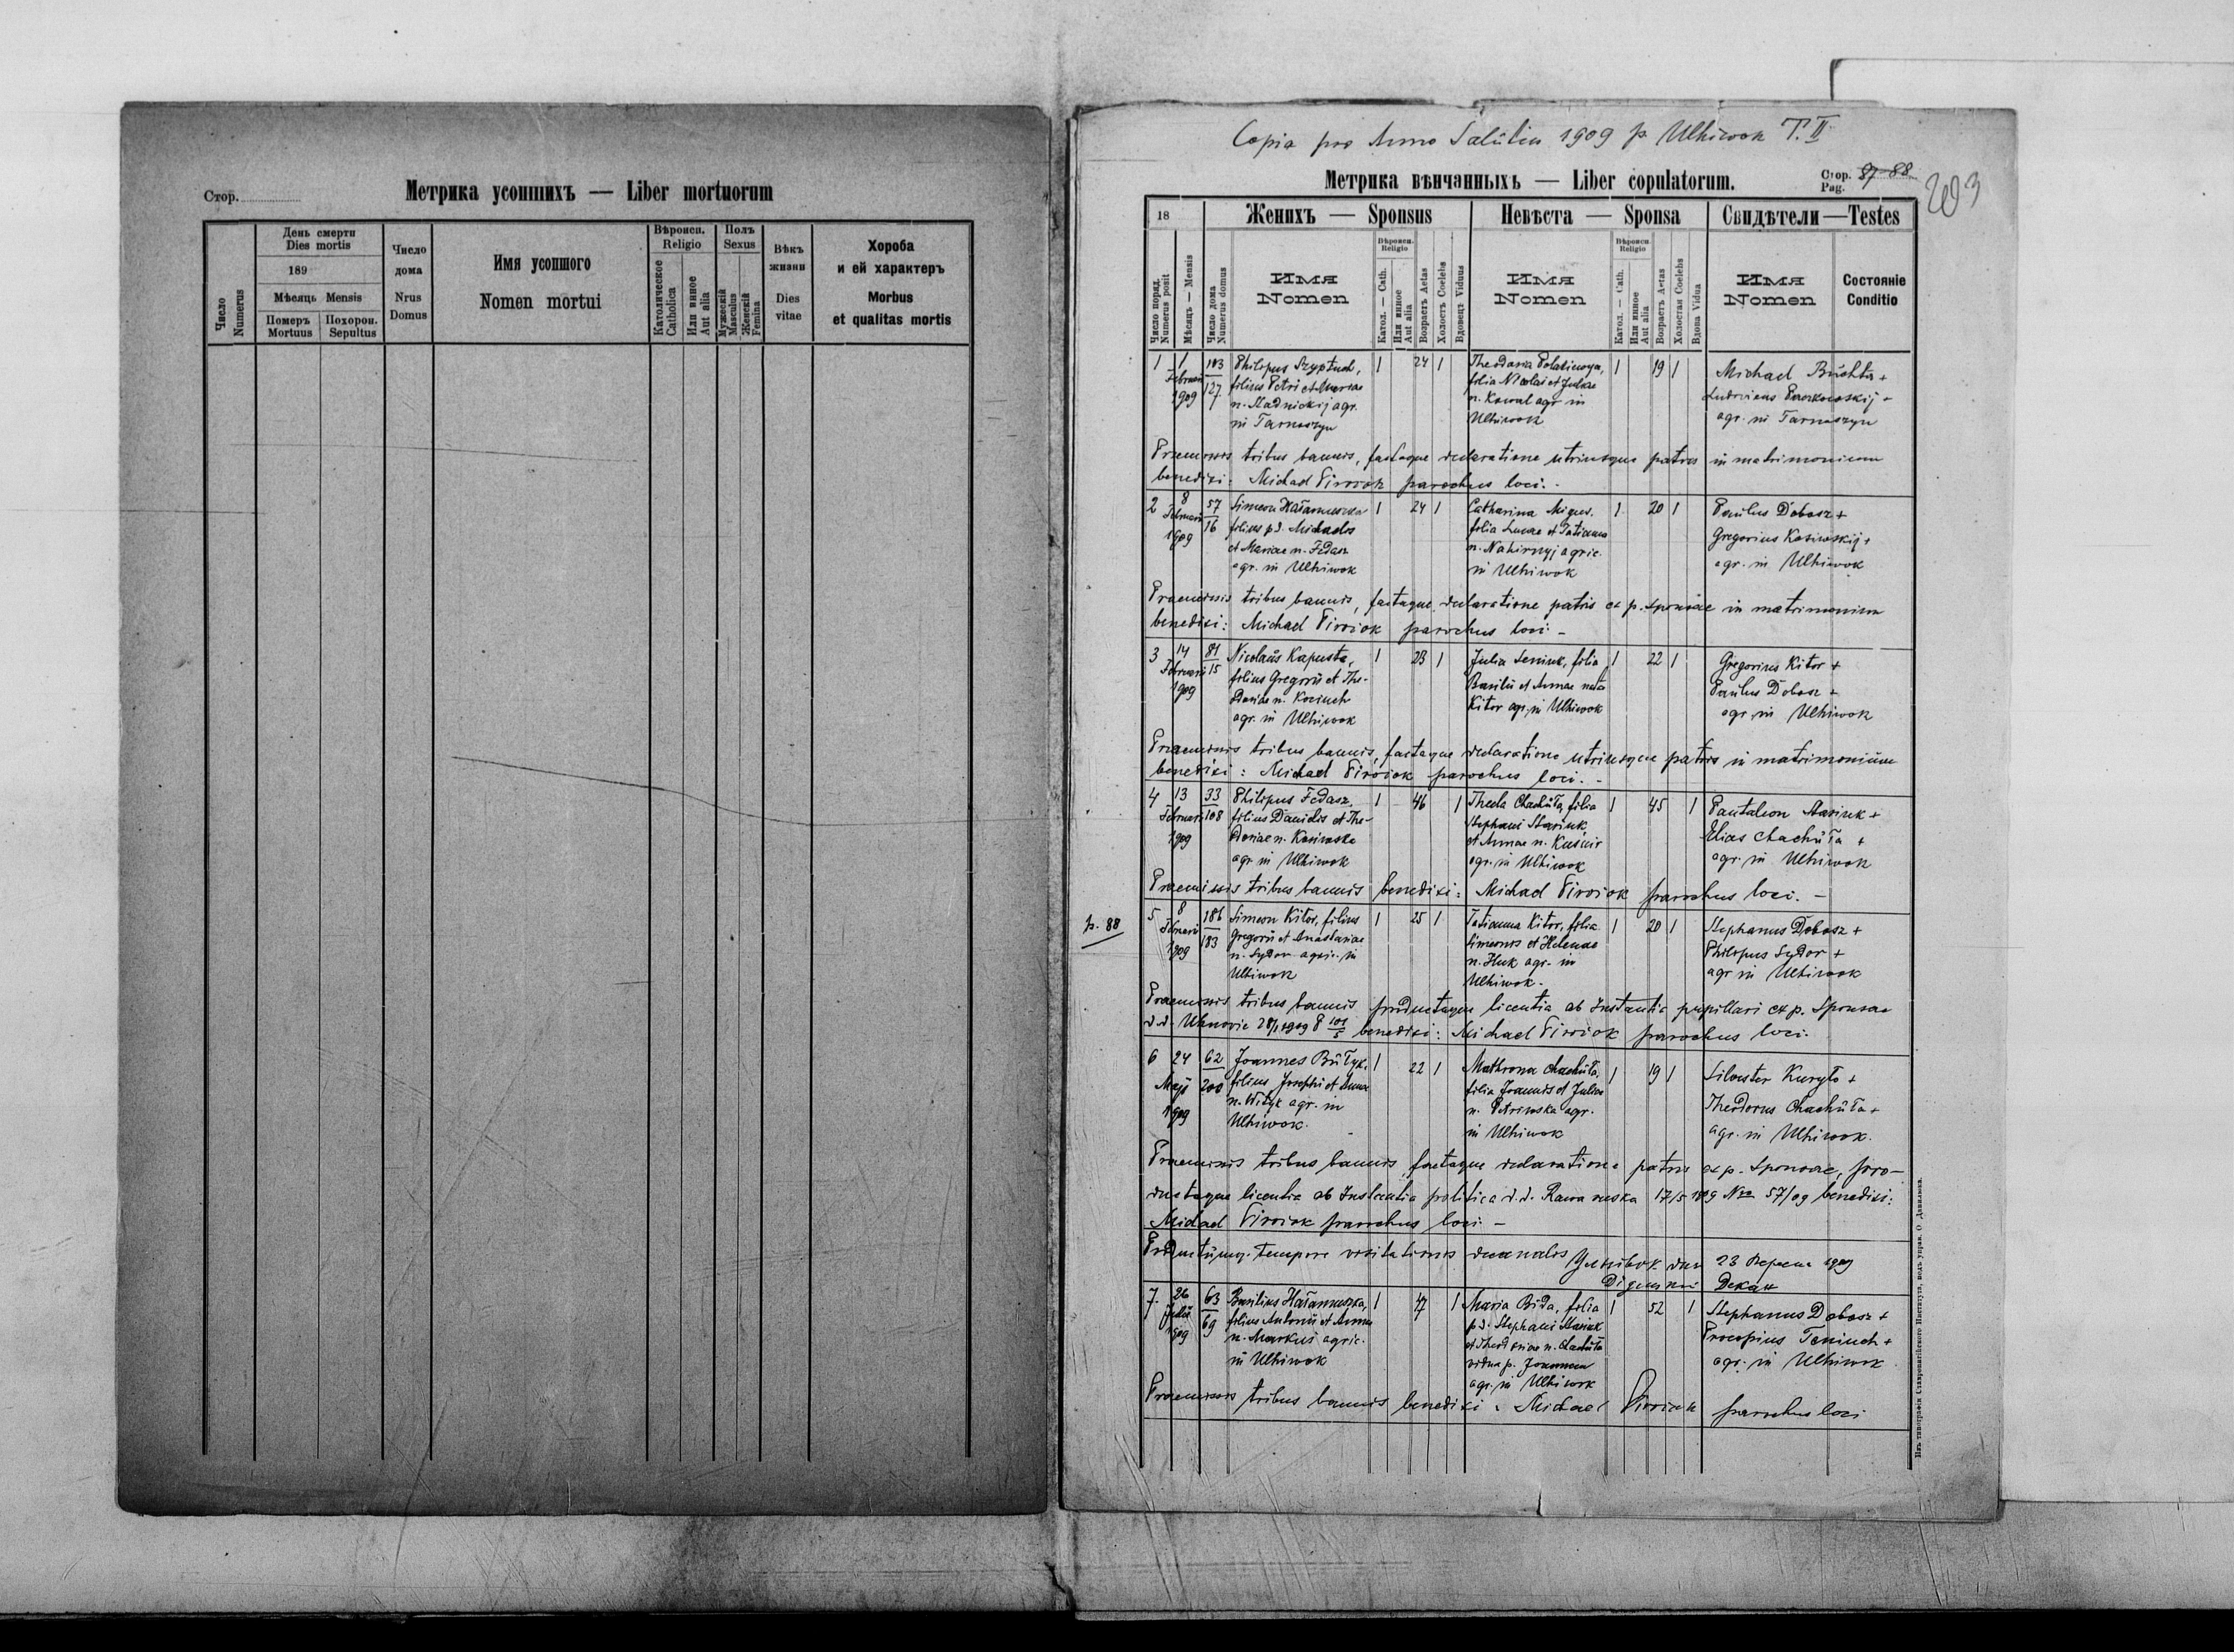 Стор.
Метрика усопшихъ — Liber mortuorum
Число
Numerus
День смерти
Dies mortis
189
Мѣсяць Mensis
Померъ
Mortuus
Похорон.
Sepultus
Число
дома
Nrus
Domus
Имя усопшого
Nomen mortui
Вѣроисп.
Religio
Католическое
Catholica
Или инное
Aut alia
Полъ
Sexus
Мужескій
Masculus
Женскій
Femina
Вѣкъ
жизни
Dies
vitae
Хороба
и ей характеръ
Morbus
et qualitas mortis
Copia pro Anno 1909 p. Ulhiwok T. II
Метрика вѣнчанныхъ — Liber copulatorum.
Стор.
Pag.
87-88
203
18
Женихъ — Sponsus
Невѣста — Sponsa
Свидѣтели — Testes
Число поряд.
Numerus posit
Мѣсяць — Mensis
Число дома
Numerus domus
Имя
Nomen
Вѣроисп.
Religio
Катол. — Cath.
Или инное
Aut alia
Возрастъ Aetas
Холостъ Coelebs
Вдовецъ Viduus
Имя
Nomen
Вѣроисп.
Religio
Катол. — Cath.
Или инное
Aut alia
Возрастъ Aetas
Холостая Coelebs
Вдова Vidua
Имя
Nomen
Состояніе
Conditio
1
1
Februarii
1909
103
127
Philipus
filius Petri et Mariae
n. Nadnickij agr.
in Tarnoszyn
1 24 1
Theodosia
filia Nicolai et Juliae
n. Kowal agr in
Ulhiwok
1 19 1
Michael Buchta +
Ludovicus +
agr. in Tarnoszyn
Praemissis tribus bannis, factaque declaratione utriusque patris in matrimonium
benedixi: Michael Pirożok parochus loci.
2
8
Februarii
1909
57
16
Simeon Hałamuszka
filius p.d. Michaelis
et Mariae n. Fedasz
agr. in Ulhiwok
1 24 1
Catharina
filia Lucae et Tatianna
n. Nahirnyj agric.
in Ulhiwok
1 20 1
Paulus Dobosz +
Gregorius Kosiwskij +
agr. in Ulhiwok
Praemissis tribus bannis, factaque declaratione patris ex p. sponsae in matrimonium
benedixi: Michael Pirożok parochus loci -
3
14
Februarii
1909
81
15
Nicolaus Kapusta,
filius Gregorii et The-
dosiae n.
agr. in Ulhiwok
1 23 1
Julia Seniuk, filia
Basilii et Annae nata
Kitor agr. in Ulhiwok
1 22 1
Gregorius Kitor +
Paulus Dobosz +
agr. in Ulhiwok
Praemissis tribus bannis, factaque declaratione utriusque patris in matrimonium
benedixi: Michael Pirożok parochus loci. -
4
13
Februarii
1909
33
108
Philipus Fedasz,
filius Danielis et The-
dosiae n. Kosiwska
agr in Ulhiwok
1 46 1
Thecla Chachuła, filia
Stephani Stasiuk
et Annae n. Kuśnir
agr. in Ulhiwok
1 45 1
Pantaleon Stasiuk +
Elias Chachuła +
agr. in Ulhiwok
Praemissis tribus bannis benedixi: Michael Pirożok parochus loci. -
p. 88
5
8
Februarii
1909
186
183
Simeon Kitor, filius
Gregorii et Anastasiae
n. Sydor agric. in
Ulhiwok
1 25 1
Tatianna Kitor, filia
Simeonis et Helenae
n. Huk agr. in
Ulhiwok.
1 20 1
Stephanus Dobosz +
Philipus Sydor +
agr in Ulhiwok
Praemissis tribus bannis productaque licentia ab Instantia pupillari ex p. Sponsae
d.d. Uhnovie 28/1 1909 P 101/5 benedixi: Michael Pirożok parochus loci.
6
24
Maji
1909
62
200
Joannes Bułyk,
filius Josephi et Annae
n. Wityk agr. in
Ulhiwok.
1 22 1
Mathrona Chachuła,
filia Joannis et Juliae
n. Petriwska agr.
in Ulhiwok
1 19 1
Silvester Kuryło +
Theodorus Chachuła +
agr. in Ulhiwok.
Praemissis tribus bannis factaque declaratione patris ex p. Sponsae, pro-
ductaque licentia ab Instantia politica d.d. Rawa ruska 17/5 1909 Nro 57/09 benedixi:
Michael Pirożok parochus loci. -
Productumq. tempore visitationis decanalis Ульгівок дня 23 Вересня 1909
Декан
7.
26
Julii
1909
63
69
Basilius Hałamuszka,
filius Antonii et Annae
n. Markus agric.
in Ulhiwok
1 47 1
Maria Bida, filia
p.d. Stephani Stasiuk
et Theodosiae n. Chachuła
vidua p. Joannem
agr. in Ulhiwok
1 52 1
Stephanus Dobosz +
Procopius +
agr. in Ulhiwok
Praemissis tribus bannis benedixi: Michael Pirożok parochus loci
Изъ типографіи Ставропигійского Института, подъ управ. О. Данилюка.